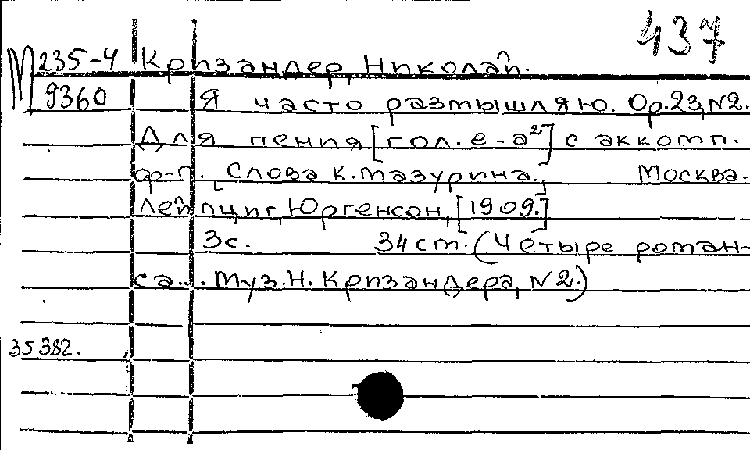 437
М 235-4 Кризандер, Николай.
9360 Я часто размышляю. Ор.23, №2.
Для пения [гол. e-a²] с аккомп.
ф-п. [Слова К. Мазурина.] Москва-
Лейпциг, Юргенсон, [1909.]
3с. 34 cm. (Четыре роман-
са... Муз. Н. Кризандера, №2.)
35382.